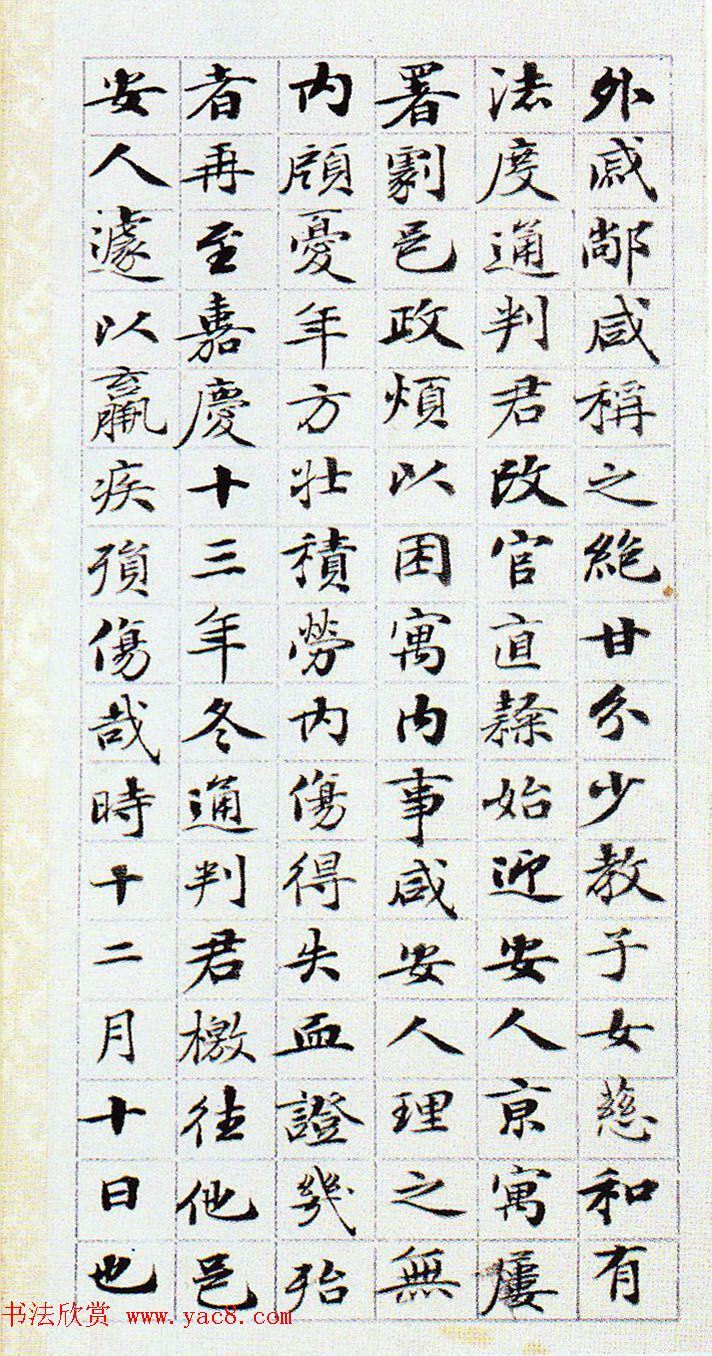 外戚鄰咸稱之絶甘分少教子女慈和有
法度通判君改官直隸始迎安人京寓屢
署劇邑政煩以困寓内事咸安人理之無
内顧憂年方壯積勞内傷得失血證幾殆
者再至嘉慶十三年冬通判君檄往他邑
安人遽以羸疾殞傷哉時十二月十日也
书法欣赏 www.yac8.com